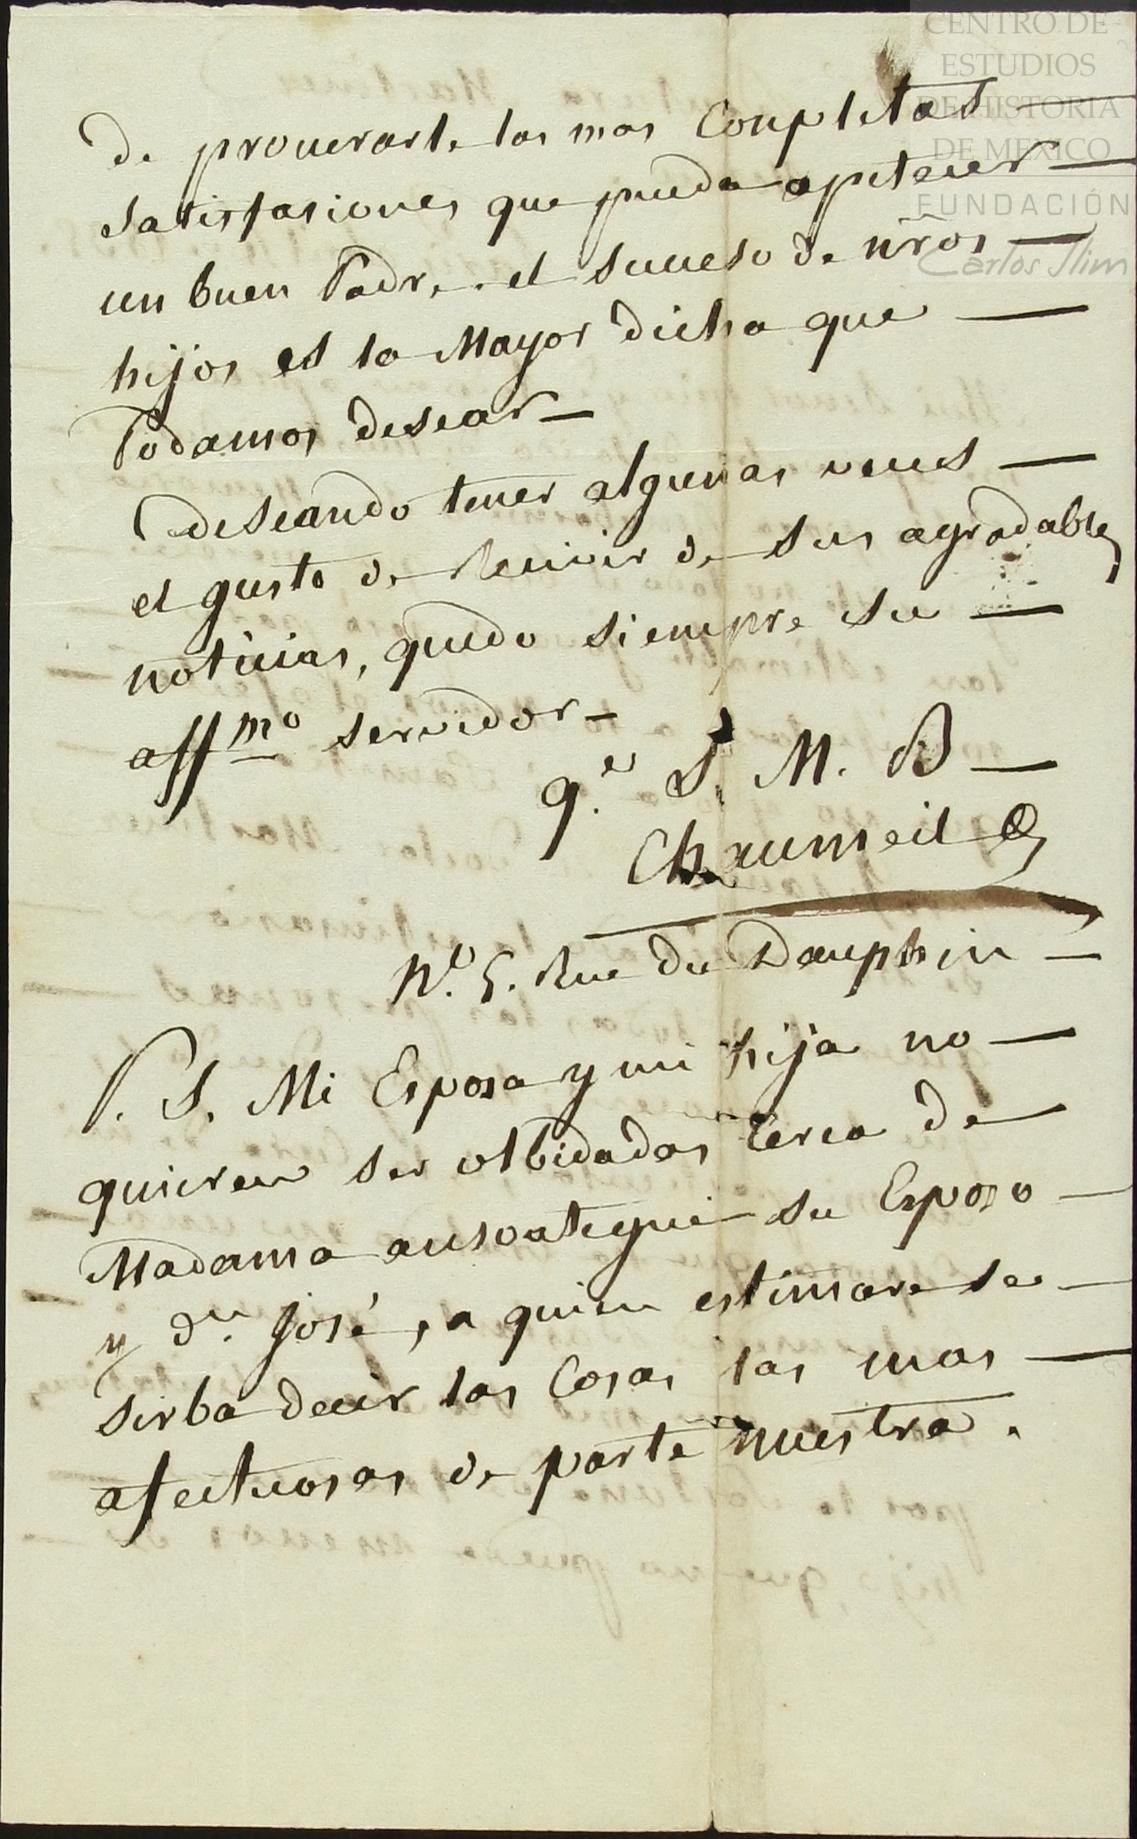 CENTRO DE
ESTUDIOS
DE HISTORIA
DE MEXICO
FUNDACIÓN
Carlos Slim
de procurarle las mas Conpletas
satisfasiones que pueda apetecer
un buen Padre. el suceso de nños
hijos es la Mayor dicha que
Podamos desear
deseando tener algunas veces
el gusto de Recivir de sus agradables
noticias, quedo siempre su
affmo servidor
q.e S. M. B
Chaumeil
No. 5. Rue du Dauphin
P. S. Mi Esposa y mi hija no
quieren ser olbidadas Cerca de
Madama ansoategui su Esposo
y dn. José, a quien estimare se
sirba decir las Cosas las mas
afectuosas de parte nuestra.